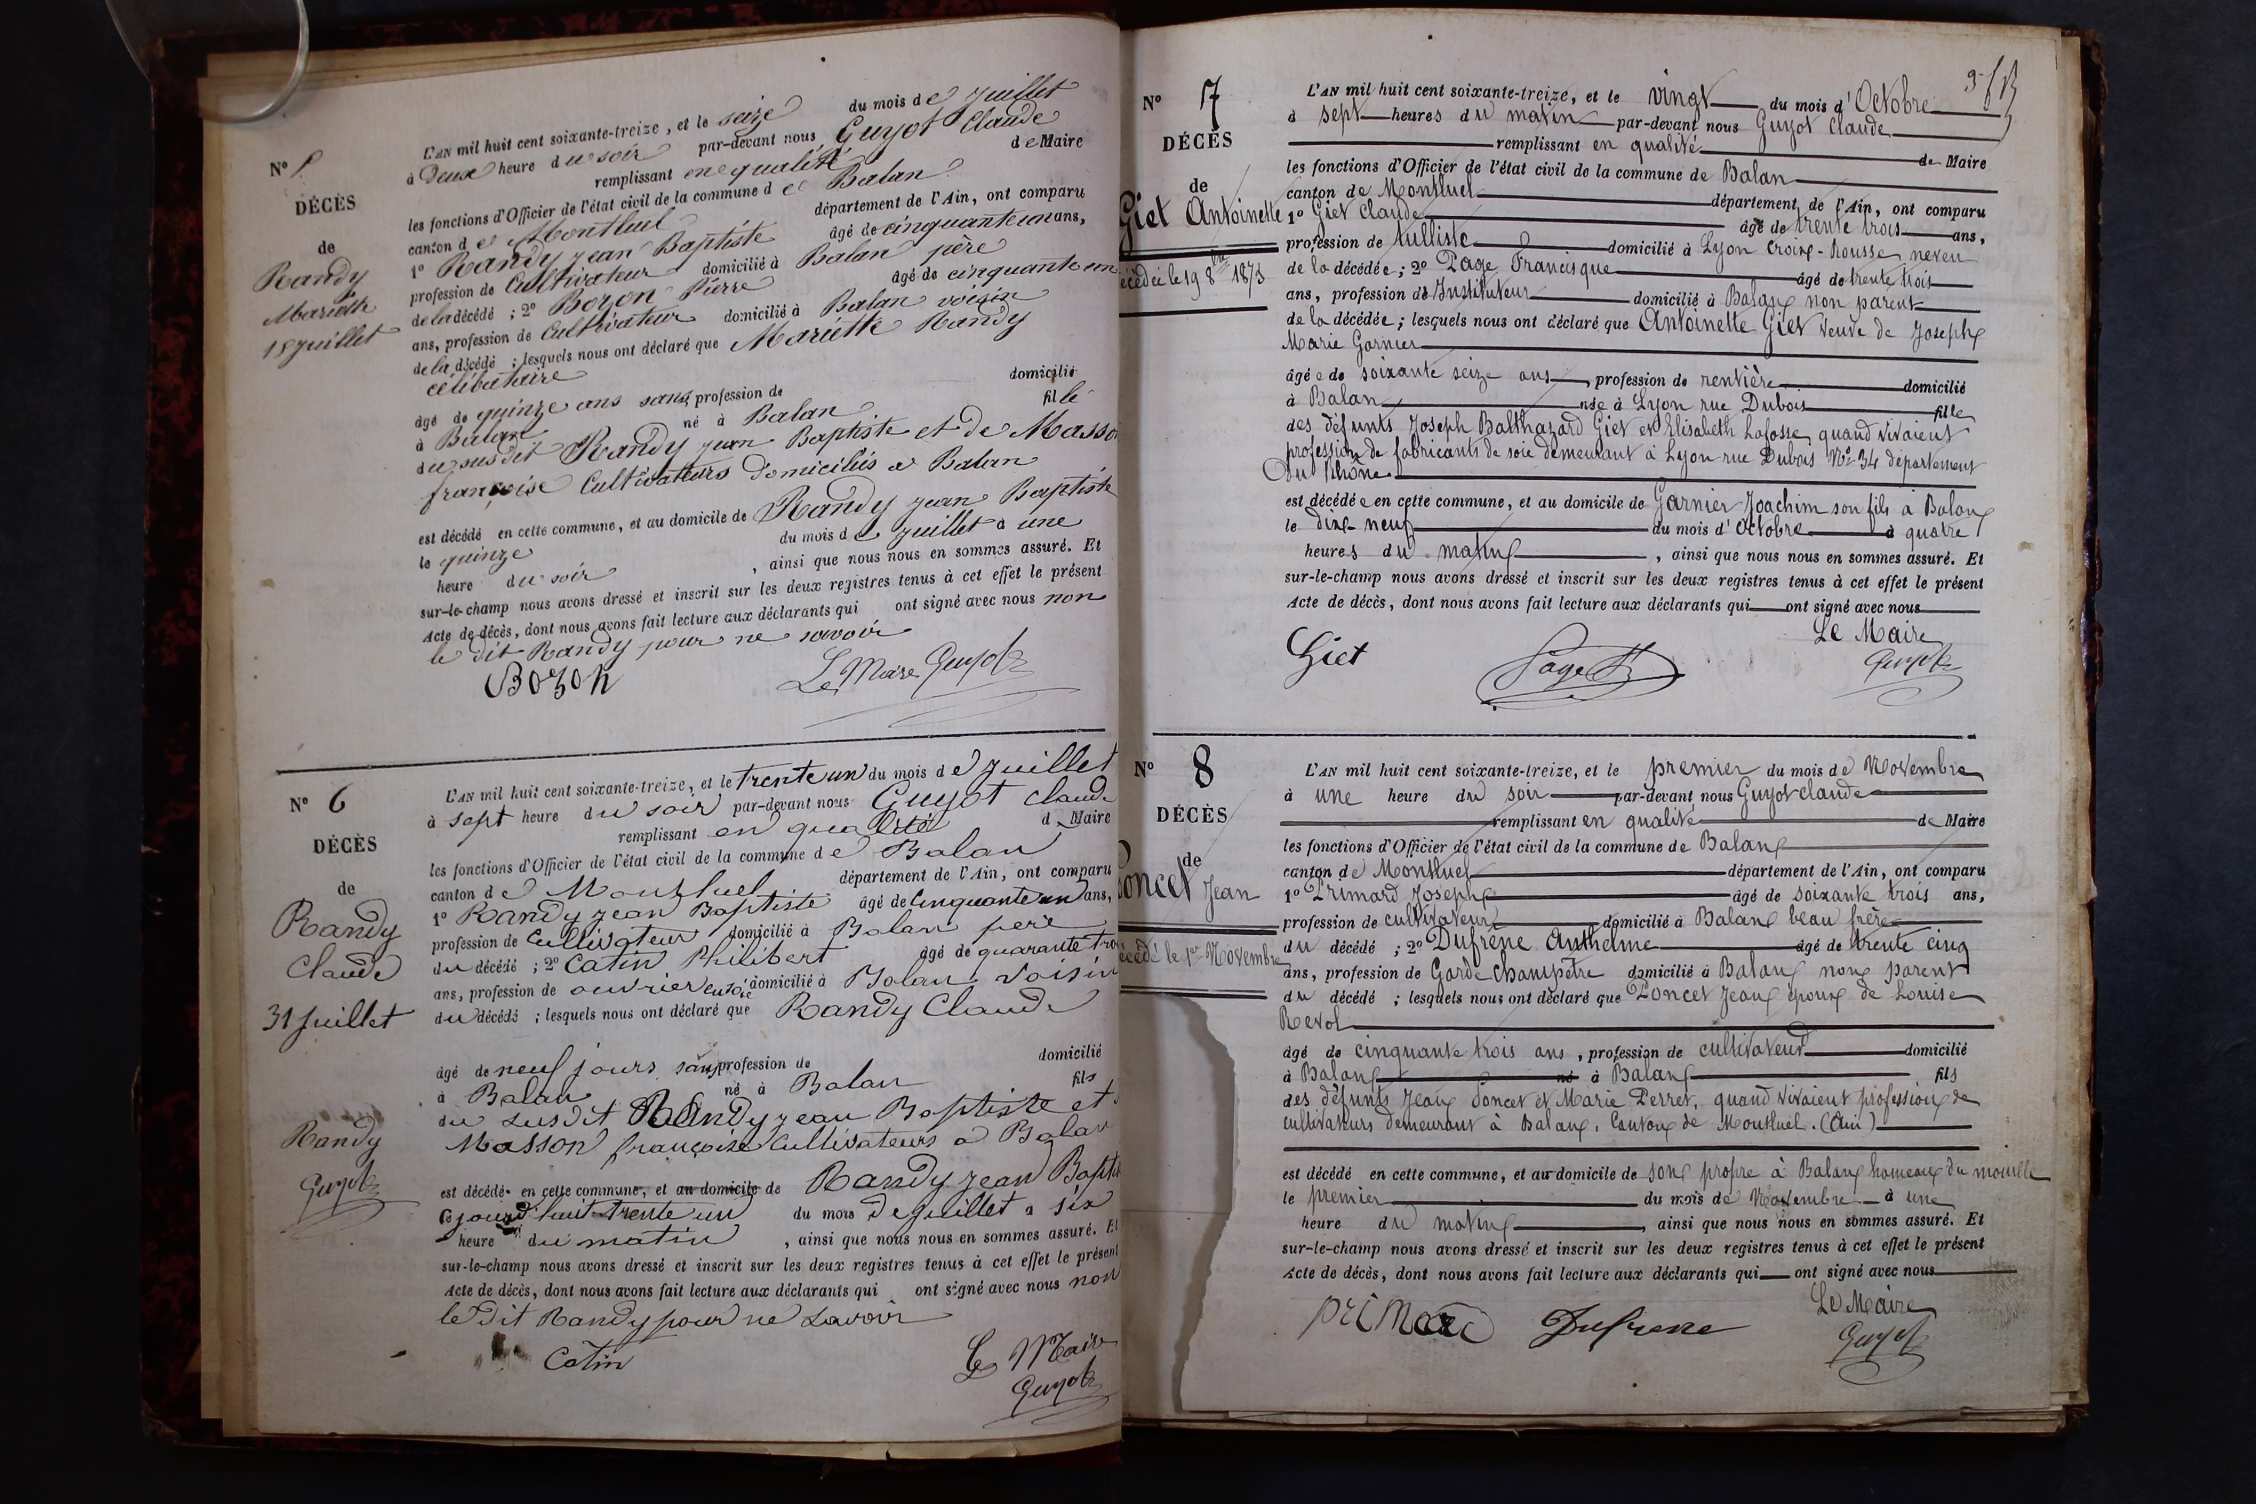 N° 5
DÉCÈS
de
Randy
Mariette
15 juillet
L'AN mil huit cent soixante-treize, et le seize du mois de juillet
à Deux heure du soir par-devant nous Guyot Claude
remplissant en qualité de Maire
les fonctions d'Officier de l'état civil de la commune de Balan
canton de Montluel département de l'Ain, ont comparu
1° Randy jean Baptiste âgé de cinquante un ans,
profession de Cultivateur domicilié à Balan père
de la décédé ; 2° Bozon Pierre âgé de cinquante un
ans, profession de Cultivateur domicilié à Balan voisin
de la décédé ; lesquels nous ont déclaré que Mariette Randy
célibataire
âgé de quinze ans sans profession de domicilié
à Balan né à Balan fille
du susdit Randy jean Baptiste et de Masson
françoise Cultivateurs domiciliés à Balan
est décédé en cette commune, et au domicile de Randy jean Baptiste
le quinze du mois de juillet à une
heure du soir , ainsi que nous nous en sommes assuré. Et
sur-le-champ nous avons dressé et inscrit sur les deux registres tenus à cet effet le présent
Acte de décès, dont nous avons fait lecture aux déclarants qui ont signé avec nous non
le dit Randy pour ne savoir
Bozon Le Maire Guyot
N° 6
DÉCÈS
de
Randy
Claude
31 juillet
Randy
Guyot
L'AN mil huit cent soixante-treize, et le trente un du mois de juillet
à sept heure du soir par-devant nous Guyot Claude
remplissant en qualité de Maire
les fonctions d'Officier de l'état civil de la commune de Balan
canton de Montluel département de l'Ain, ont comparu
1° Randy jean Baptiste âgé de Cinquante un ans,
profession de Cultivateur domicilié à Balan père
du décédé ; 2° Catin Philibert âgé de quarante tro
ans, profession de ouvrier en soie domicilié à Balan voisin
du décédé ; lesquels nous ont déclaré que Randy Claude
âgé de neuf jours sans profession de domicilié
à Balan né à Balan fils
du susdit Randy jean Baptiste et
Masson françoise Cultivateurs a Balan
est décédé en cette commune, et au domicile de Randy jean Baptis
jourd'huit trente un du mois de juillet à six
heure du matin , ainsi que nous nous en sommes assuré. Et
sur-le-champ nous avons dressé et inscrit sur les deux registres tenus à cet effet le présent
Acte de décès, dont nous avons fait lecture aux déclarants qui ont signé avec nous non
le dit Randy pour ne savoir
Catin Le Maire
Guyot
N° 7
DÉCÈS
de
Giet Antoinette
écédée le 19 8bre 1873
L'AN mil huit cent soixante-treize, et le vingt du mois d'Octobre
à sept heures du matin par-devant nous Guyot Claude
remplissant en qualité de Maire
les fonctions d'Officier de l'état civil de la commune de Balan
canton de Montluel département de l'Ain, ont comparu
1° Giet Claude âgé de trente trois ans,
profession de tulliste domicilié à Lyon croix-rousse neveu
de la décédée ; 2° Page Francisque âgé de trente trois
ans, profession de Instituteur domicilié à Balan non parent
de la décédée ; lesquels nous ont déclaré que Antoinette Giet veuve de Joseph
Marie Garnier
âgée de soixante seize ans, profession de rentière domicilié
à Balan née à Lyon rue Dubois fille
des défunts Joseph Balthazard Giet et Elisabeth Lafosse, quand vivaient
profession de fabricants de soie demeurant à Lyon rue Dubois N° 34 département
Du Rhône
est décédée en cette commune, et au domicile de Garnier Joachim son fils à Balan
le dix-neuf du mois d'Octobre à quatre
heures du matin , ainsi que nous nous en sommes assuré. Et
sur-le-champ nous avons dressé et inscrit sur les deux registres tenus à cet effet le présent
Acte de décès, dont nous avons fait lecture aux déclarants qui ont signé avec nous
Le Maire
Giet Page Guyot
N° 8
DÉCÈS
de
Poncet Jean
écédé le 1er Novembre
L'AN mil huit cent soixante-treize, et le premier du mois de Novembre
à une heure du soir par-devant nous Guyot claude
remplissant en qualité de Maire
les fonctions d'Officier de l'état civil de la commune de Balan
canton de Montluel département de l'Ain, ont comparu
1° Primard Joseph âgé de soixante trois ans,
profession de cultivateur domicilié à Balan beau frère
du décédé ; 2° Dufrène Anthelme âgé de trente cinq
ans, profession de Garde champêtre domicilié à Balan non parent
du décédé ; lesquels nous ont déclaré que Poncet Jean époux de Louise
Revol
âgé de cinquante trois ans, profession de cultivateur domicilié
à Balan né à Balan fils
des défunts Jean Poncet et Marie Perret, quand vivaient profession de
cultivateurs demeurant à Balan, Canton de Montluel. (Ain)
est décédé en cette commune, et au domicile de son propre à Balan hameau du
le premier du mois de Novembre à une
heure du matin , ainsi que nous nous en sommes assuré. Et
sur-le-champ nous avons dressé et inscrit sur les deux registres tenus à cet effet le présent
Acte de décès, dont nous avons fait lecture aux déclarants qui ont signé avec nous
Le Maire
Primard Dufrene Guyot